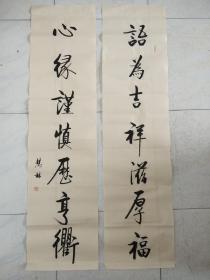 語為吉祥滋厚福
心緣謹慎歷亨衢